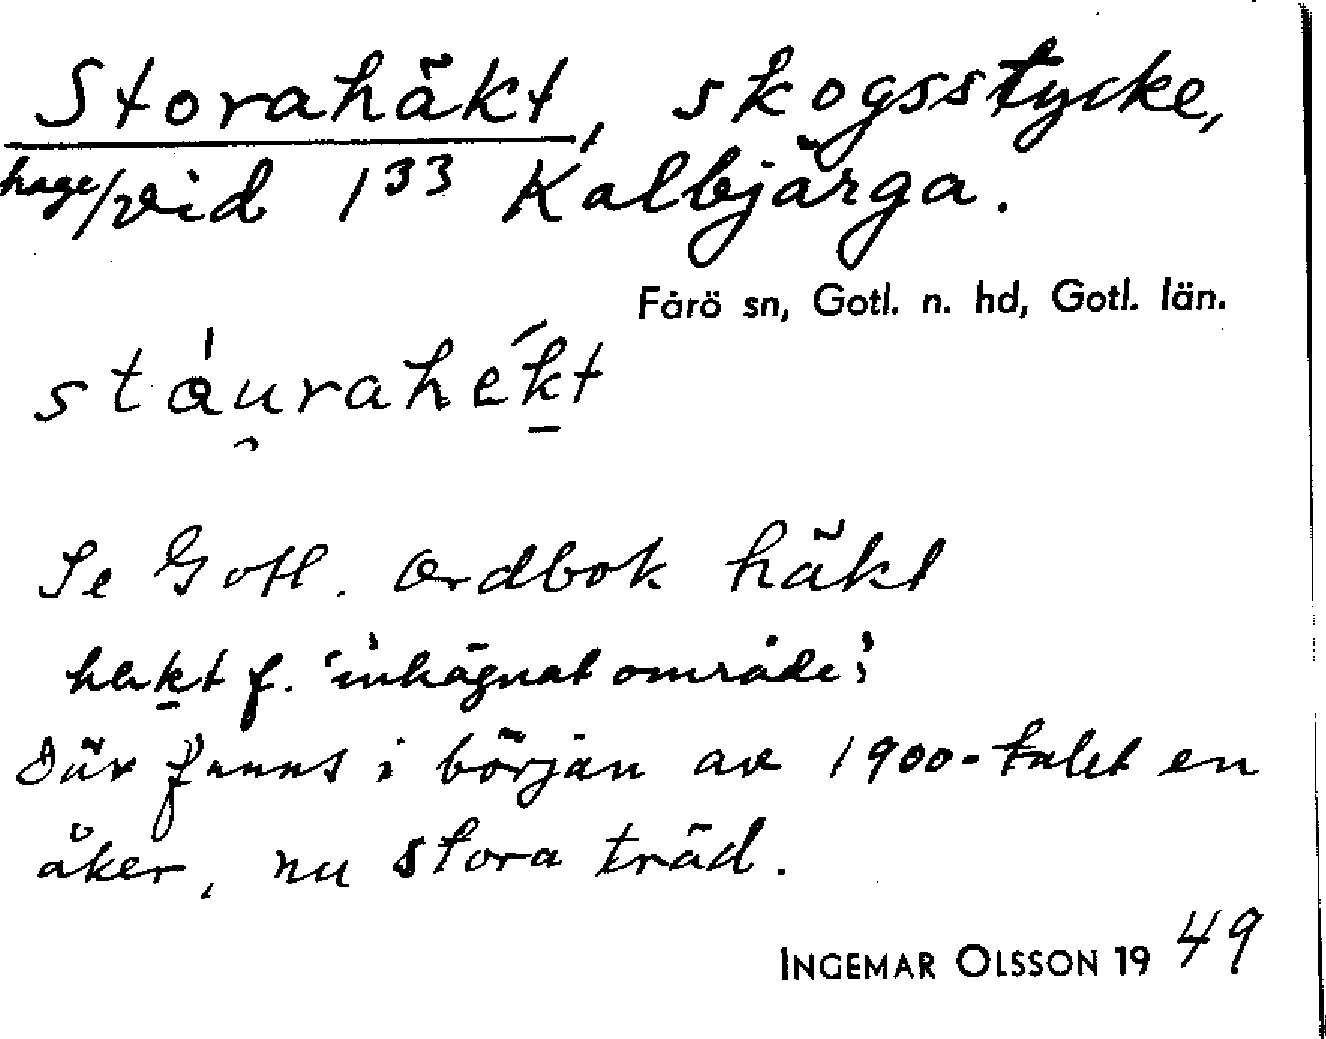 Storahäkt, skogsstycke,
hage/vid 1³³ Kalbjärga.
Fårö sn, Gotl. n. hd, Gotl. län.
stáu̯rahék̠t
Se Gotl. Ordbok häkt
hek̠t f. 'inhägnat område';
Där fanns i början av 1900-talet en
åker, nu stora träd.
INGEMAR OLSSON 1949